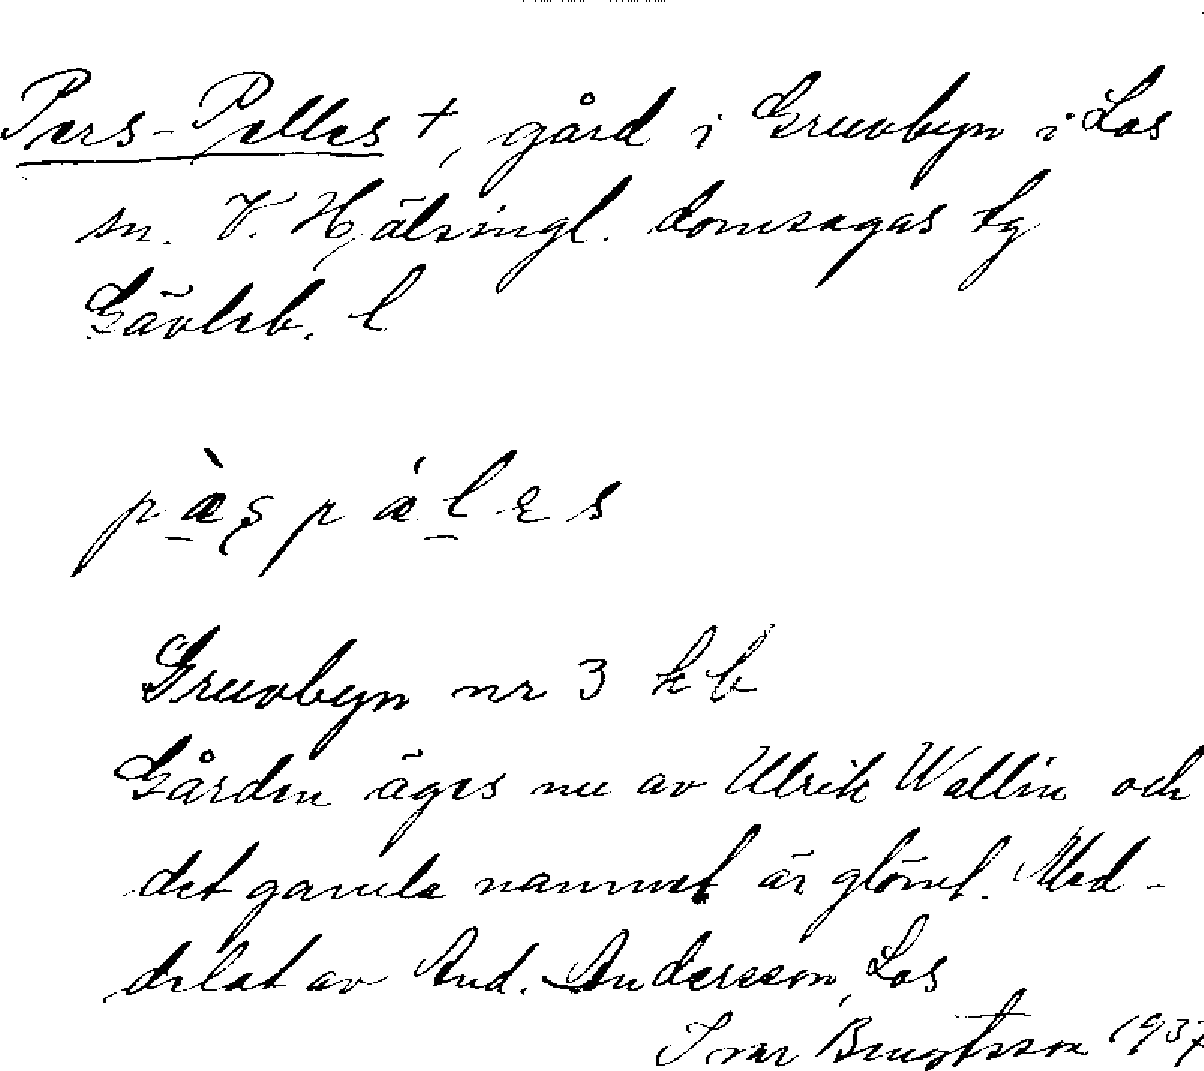 Pers-Pelles +, gård i Gruvbyn i Los
sn. V. Hälsingl. domsagas tg
Gävleb. l
Gruvbyn nr 3 kb
Gården äges nu av Ulrik Wallin och
det gamla namnet är glömt. Med-
delat av And. Andersson, Los
Ivar Bengtsson 1937